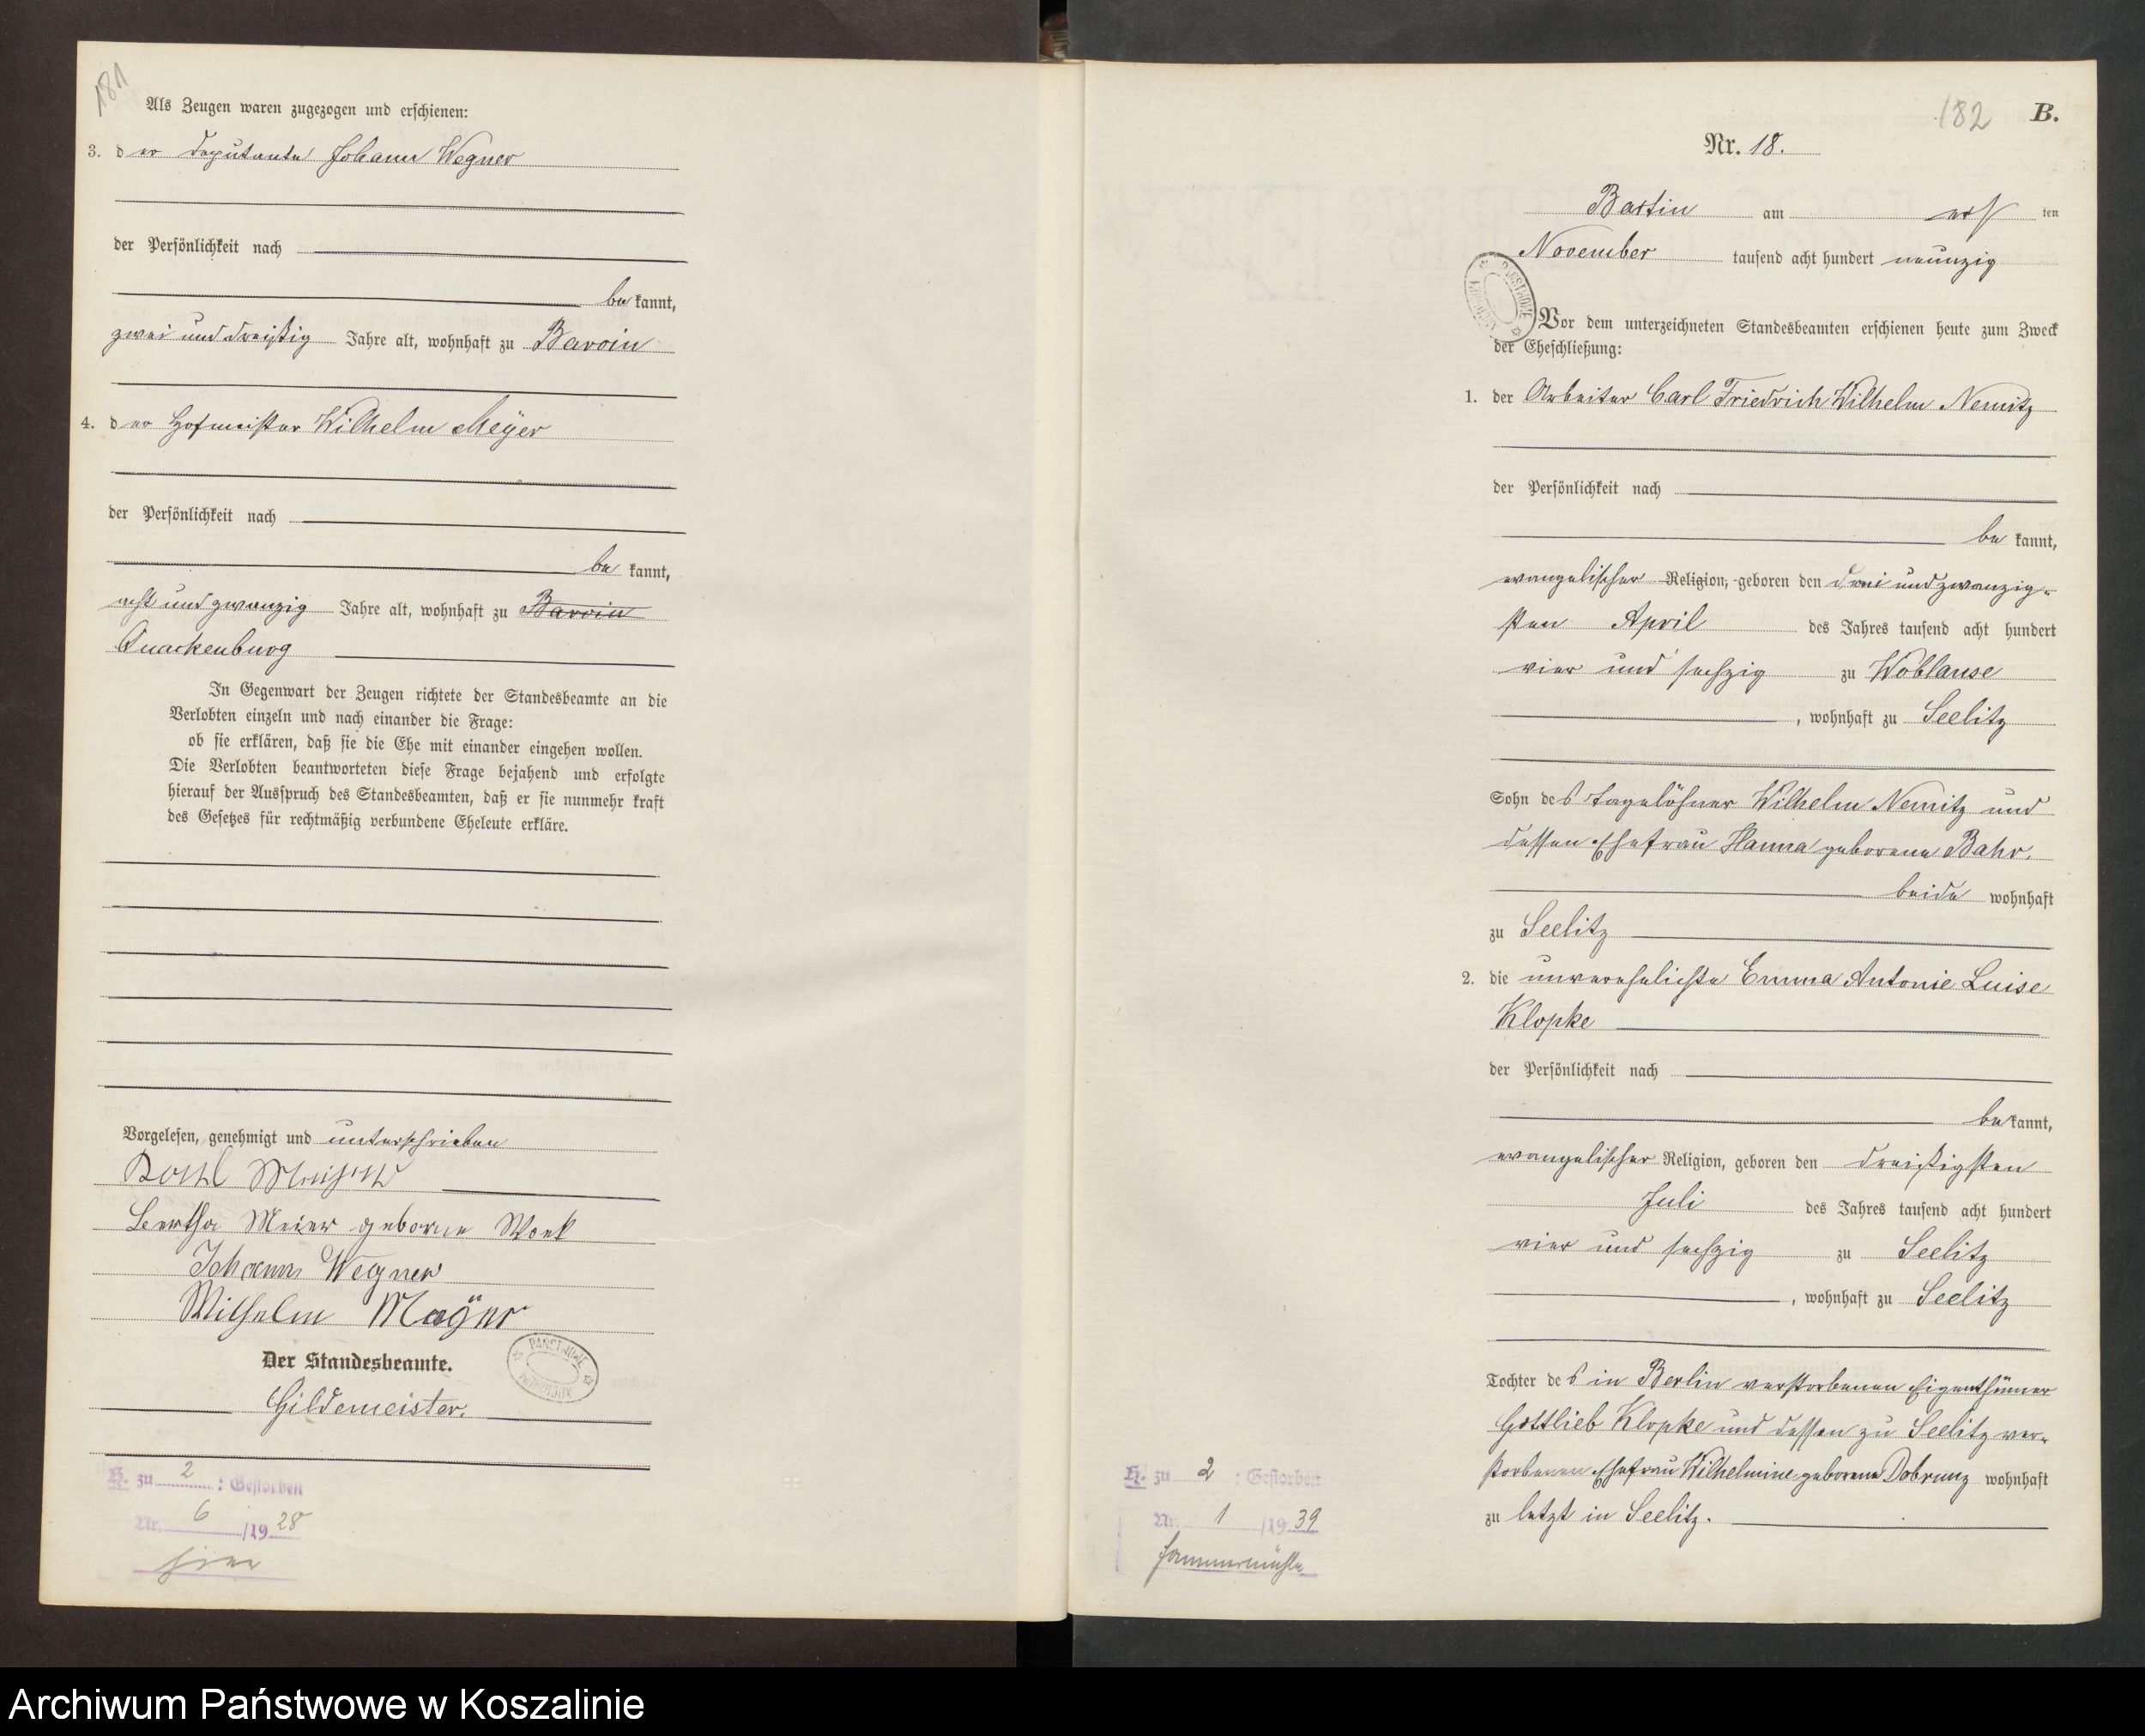 181
Als Zeugen waren zugezogen und erschienen:
3. der Deputante Johann Wegner
der Persönlichkeit nach
bekannt,
zwei und dreißig Jahre alt, wohnhaft zu Barvin
4. der Hofmeister Wilhelm Meÿer
der Persönlichkeit nach
bekannt,
acht und zwanzig Jahre alt, wohnhaft zu Barvin
Quackenburg
In Gegenwart der Zeugen richtete der Standesbeamte an die
Verlobten einzeln und nach einander die Frage:
ob sie erklären, daß sie die Ehe mit einander eingehen wollen.
Die Verlobten beantworteten diese Frage bejahend und erfolgte
hierauf der Ausspruch des Standesbeamten, daß er sie nunmehr kraft
des Gesetzes für rechtmäßig verbundene Eheleute erkläre.
Vorgelesen, genehmigt und unterschrieben
Bertha Meier geborne
Johann Wegner
Wilhelm Maÿer
Der Standesbeamte.
Gildemeister.
H. zu 2 : Gestorben
Nr. 6 /19 28
hier
182 B.
Nr. 18.
Bartin am ersten
November tausend acht hundert neunzig
Vor dem unterzeichneten Standesbeamten erschienen heute zum Zweck
der Eheschließung:
1. der Arbeiter Carl Friedrich Wilhelm Nemitz
der Persönlichkeit nach
bekannt,
evangelischer Religion, geboren den drei und zwanzig-
sten April des Jahres tausend acht hundert
vier und sechzig zu Woblanse
, wohnhaft zu Seelitz
Sohn des Tagelöhner Wilhelm Nemitz und
dessen Ehefrau Hanna geborene Bahr.
beide wohnhaft
zu Seelitz
2. die unverehelichte Emma Antonie Luise
Klopke
der Persönlichkeit nach
bekannt,
evangelischer Religion, geboren den dreißigsten
Juli des Jahres tausend acht hundert
vier und sechzig zu Seelitz
, wohnhaft zu Seelitz
Tochter des in Berlin verstorbenen Eigenthümer
Gottlieb Klopke und dessen zu Seelitz ver-
storbenen Ehefrau Wilhelmine geborene Dobrunz wohnhaft
zu letzt in Seelitz.
H. zu 2 : Gestorben
Nr. 1 /19 39
Hammermühle
Archiwum Państwowe w Koszalinie